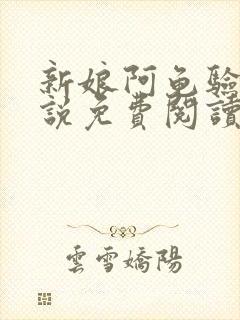 新娘阿兔驗
說免費閱讀
雲雪嬌陽